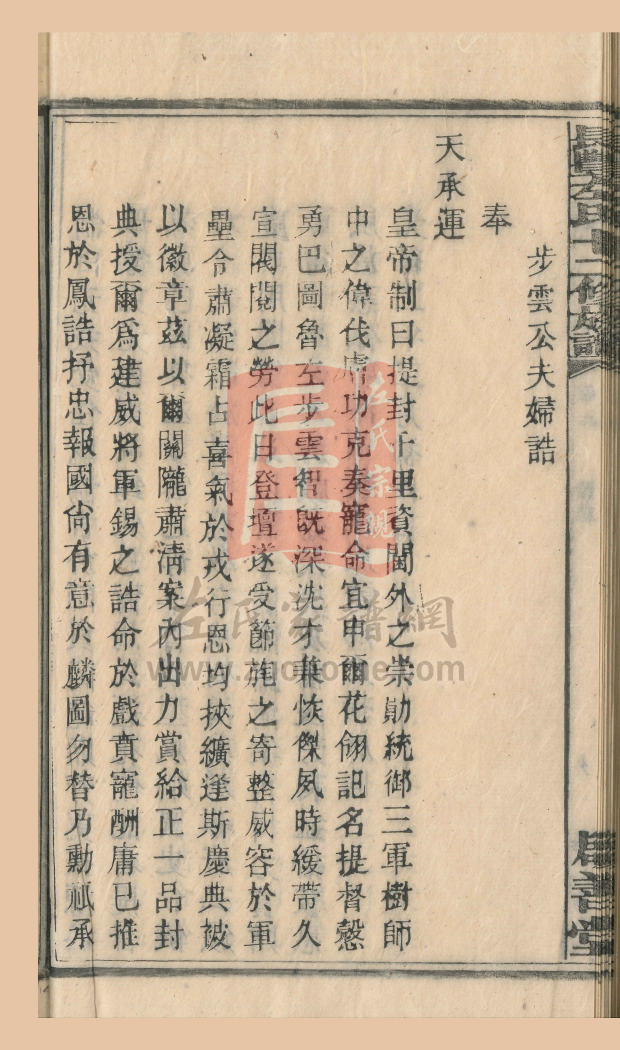 長豐左氏十二修族譜
居善堂
步雲公夫婦誥
奉
天承運
皇帝制曰提封千里資閫外之崇勛統御三軍樹師
中之偉伐膚功克奏寵命宜申爾花翎記名提督慤
勇巴圖魯左步雲智旣深沈才兼恢傑夙時緩帶久
宣閥閱之勞此日登壇遂受節旄之寄整威容於軍
壘令肅凝霜占喜氣於戎行恩均挾纊逢斯慶典被
以徽章茲以爾關隴肅清案內出力賞給正一品封
典授爾爲建威將軍錫之誥命於戲賁寵酬庸已推
恩於鳳誥抒忠報國尙有意於麟圖勿替乃勳祇承
左氏宗親
左氏宗譜網
www.zuojiane.com